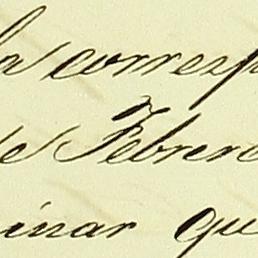 la corresp
de Febrero
inar que